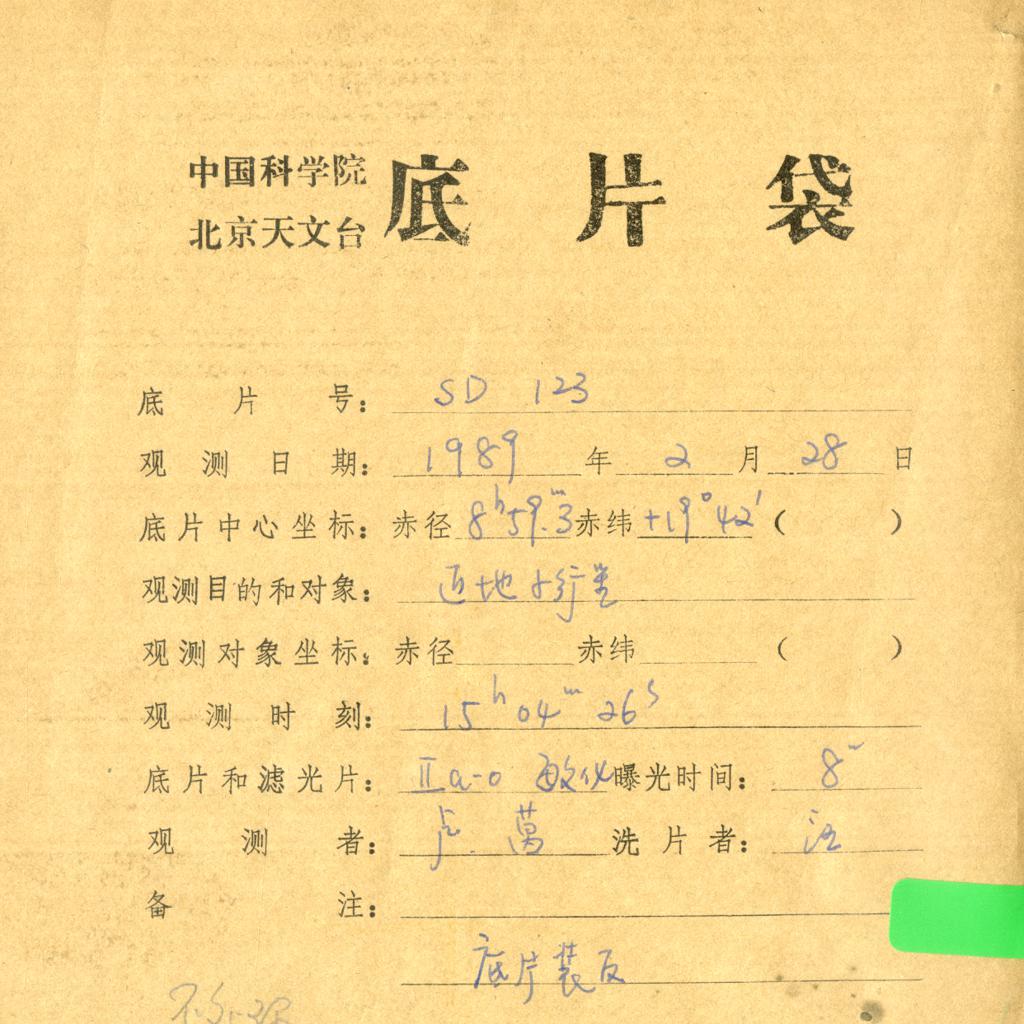 中国科学院
北京天文台
底片袋
底片号: SD 123
观测日期: 1989年2月28日
底片中心坐标: 赤径 8ʰ59ᵐ.3 赤纬 +19°42′ ( )
观测目的和对象: 近地小行星
观测对象坐标: 赤径 赤纬 ( )
观测时刻: 15ʰ04ᵐ26ˢ
底片和滤光片: IIa-o 敏化 曝光时间: 8ᵐ
观测者: 洗片者: 汪
备注:
底片装反